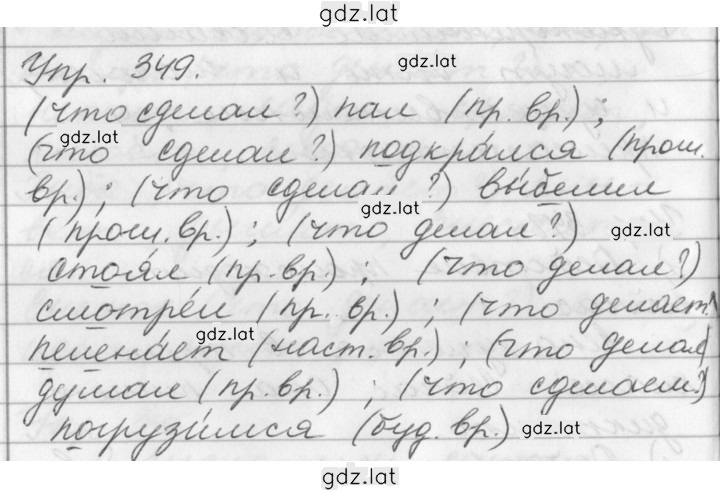 gdz.lat
Упр. 349.
gdz.lat
(что сделал?) пал (пр. вр.);
gdz.lat
(что сделал?) подкра́лся (прош.
вр.); (что сделал?) вы́белил
gdz.lat
(прош. вр.); (что делал?)
gdz.lat
стоя́л (пр. вр.); (что делал?)
смотре́л (пр. вр.); (что делает?)
gdz.lat
пелена́ет (наст. вр.); (что делал
ду́мал (пр. вр.); (что сделаем?)
погрузи́мся (буд. вр.)
gdz.lat
gdz.lat